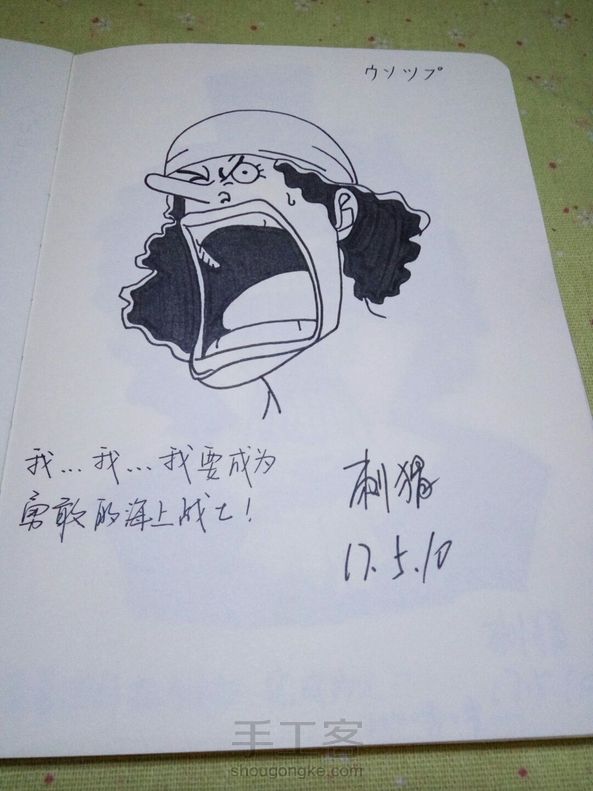 ウソップ
我...我...我要成为
勇敢的海上战士!
刺猬
17.5.10
手工客
shougongke.com